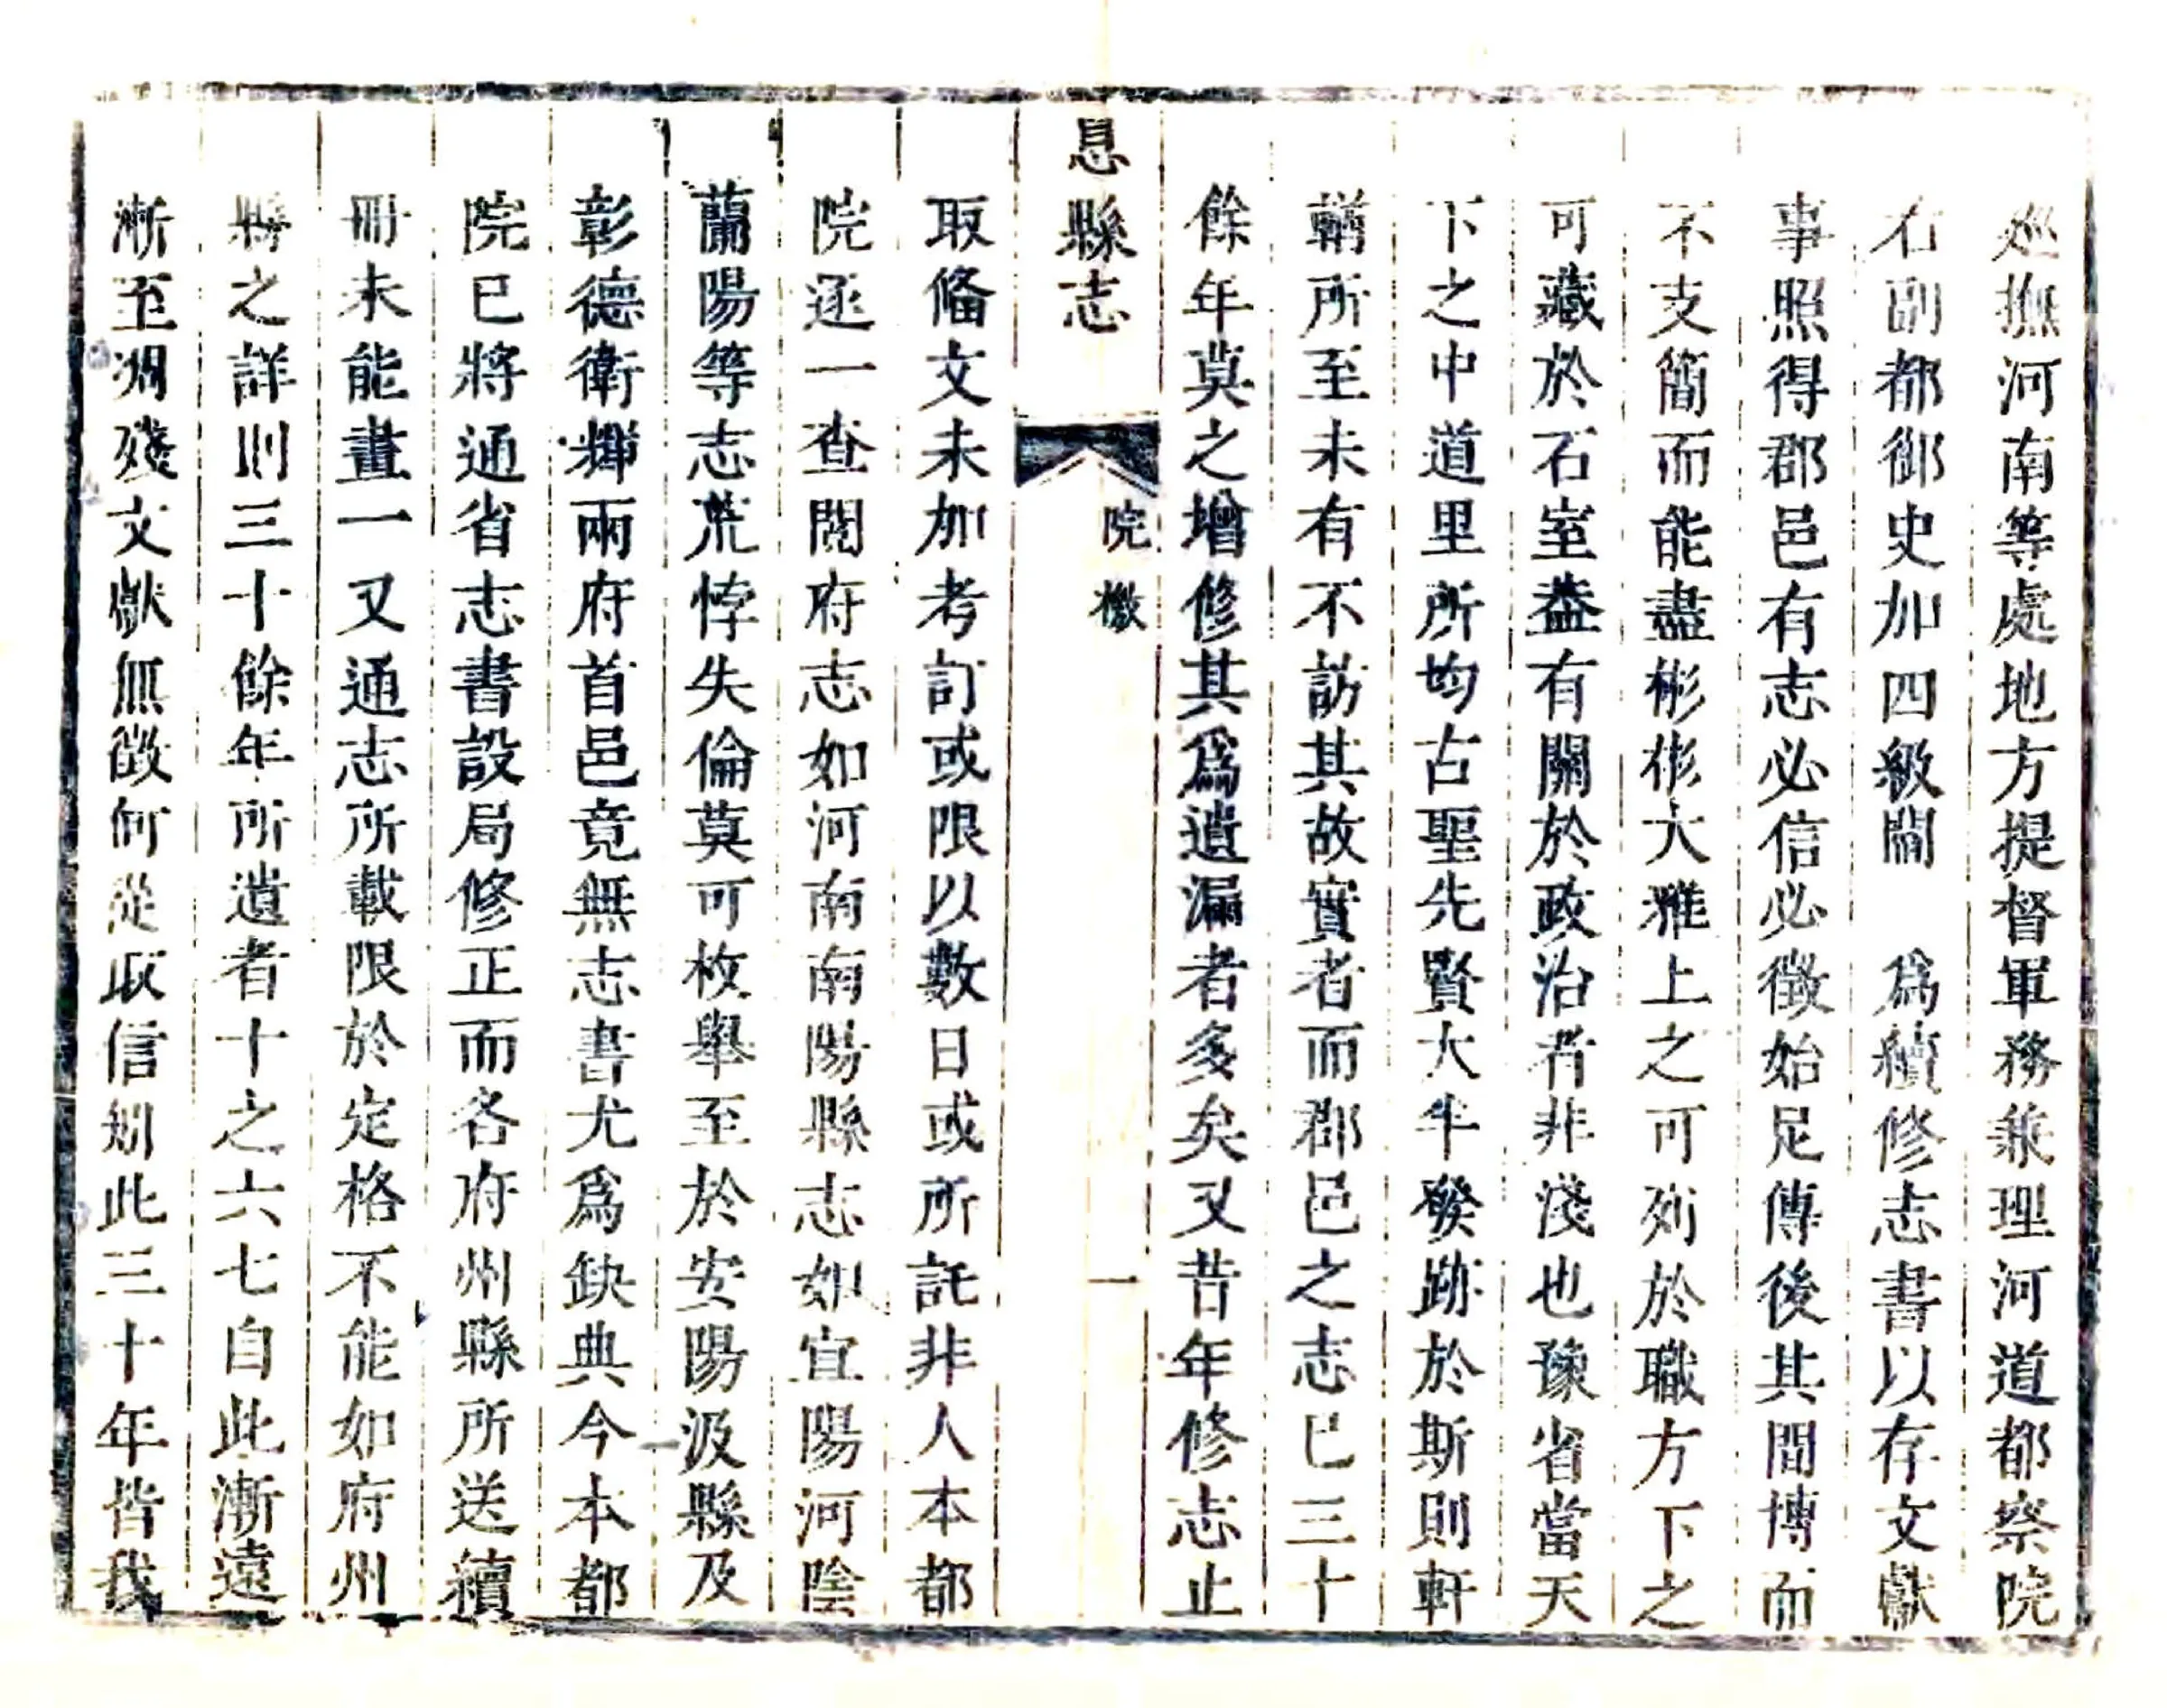 巡撫河南等處地方提督軍務兼理河道都察院
右副都御史加四級閻　為續修志書以存文獻
事照得郡邑有志必信必徵始足傳後其間博而
不支簡而能盡彬彬大雅上之可列於職方下之
可藏於石室葢有關於政治者非淺也豫省當天
下之中道里所均古聖先賢大半發跡於斯則軒
輶所至未有不訪其故實者而郡邑之志已三十
餘年莫之增修其爲遺漏者多矣又昔年修志止
息縣志
院檄
一
取俻文未加考訂或限以數日或所託非人本都
院逐一查閱府志如河南南陽縣志如宜陽河陰
蘭陽等志荒悖失倫莫可枚舉至於安陽汲縣及
彰德衛輝兩府首邑竟無志書尤爲缺典今本都
院已將通省志書設局修正而各府州縣所送續
冊未能畫一又通志所載限於定格不能如府州
縣之詳則三十餘年所遺者十之六七自此漸遠
漸至凋殘文獻無徵何從取信矧此三十年皆我